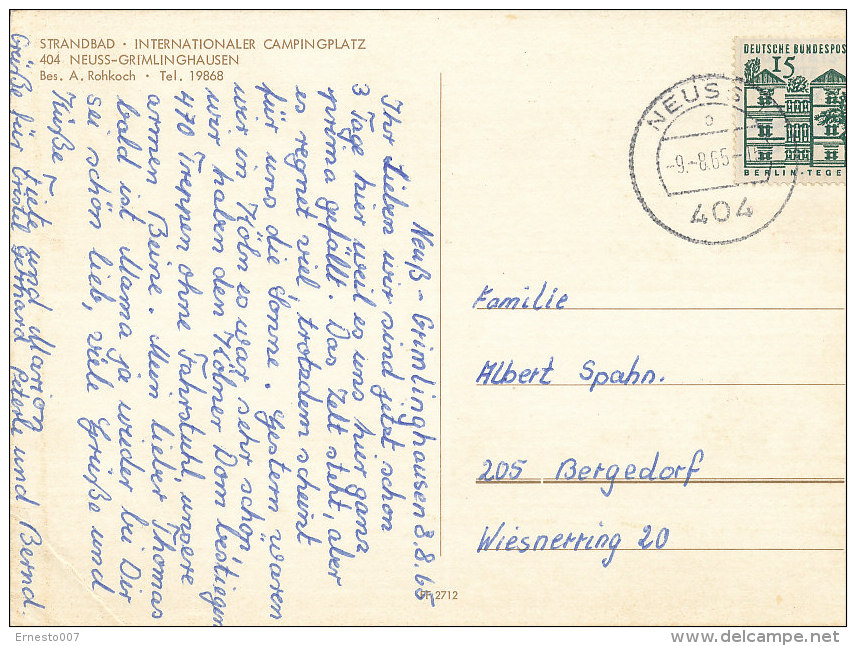 STRANDBAD · INTERNATIONALER CAMPINGPLATZ
404 NEUSS-GRIMLINGHAUSEN
Bes. A. Rohkoch · Tel. 19868
Neuß-Grimlinghausen 8.8.65
Ihr Lieben wir sind jetzt schon
3 Tage hier weil es uns hier ganz
prima gefällt. Das Zelt steht, aber
es regnet viel, trotzdem scheint
für uns die Sonne. Gestern waren
wir in Köln es war sehr schön,
wir haben den Kölner Dom bestiegen
470 Treppen ohne Fahrstuhl, unsere
armen Beine. Mein lieber Thomas
bald ist Mama ja wieder bei Dir
sei schön lieb, viele Grüße und
Küße
und Marion
Grüße für Christel Gerhard Peterle und Bernd.
DEUTSCHE BUNDESPOS
15
BERLIN-TEGE
NEUSS
-9.-8.65-
404
Familie
Albert Spahn.
205 Bergedorf
Wiesnerring 20
2712
Ernesto007
delcampe.net